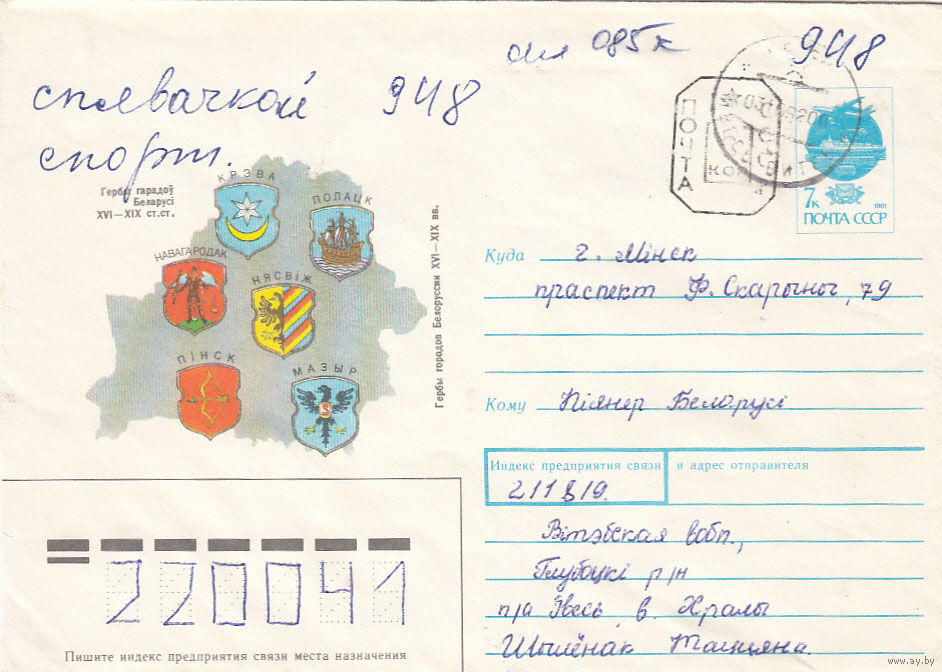 085к 948
спявачкой 948
спорт.
Гербы гарадоў
Беларусі
XVI—XIX ст.ст.
КРЭВА
ПОЛАЦК
НАВАГАРОДАК
НЯСВІЖ
ПІНСК
МАЗЫР
Гербы городов Белоруссии XVI—XIX вв.
ПОЧТА
КОП
7к
1991
ПОЧТА СССР
Куда г. Мінск
праспект Ф. Скарыны, 79
Кому Піянер Беларусі
Индекс предприятия связи и адрес отправителя
211819.
Вітэбская вобл.,
Глыбоцкі р/н
п/а Івесь в. Хралы
Шышёнак Таццяна.
220041
Пишите индекс предприятия связи места назначения
www.ay.by